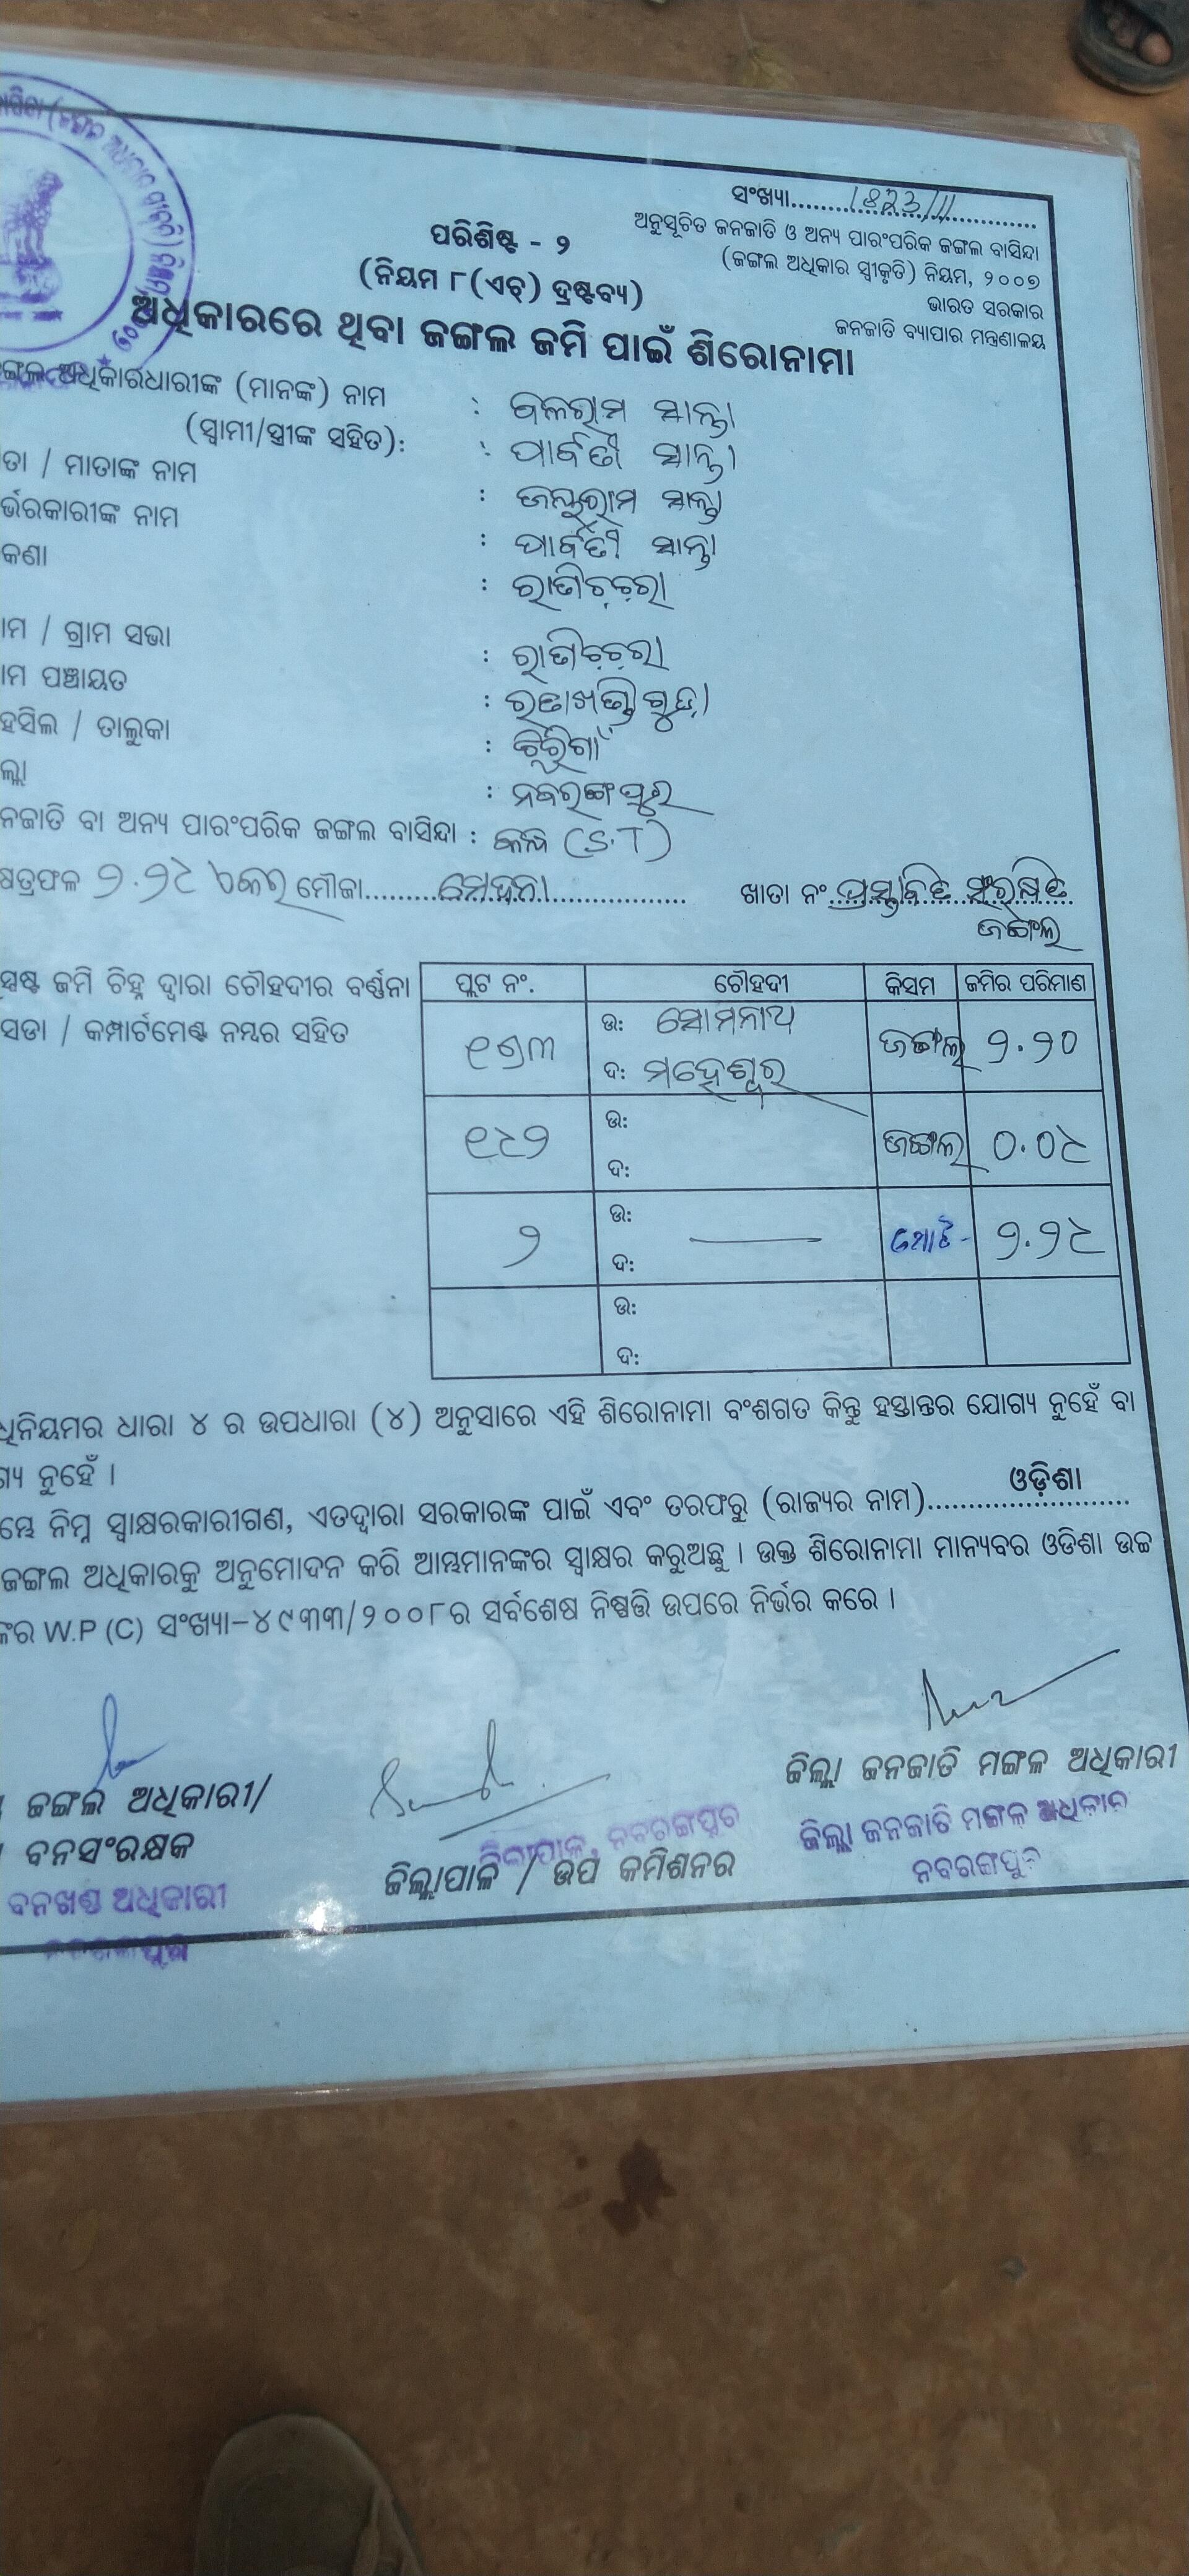 ସଂଖ୍ୟା.......1823/11.......
ଅନୁସୂଚିତ ଜନଜାତି ଓ ଅନ୍ୟ ପାରଂପରିକ ଜଙ୍ଗଲ ବାସିନ୍ଦା
(ଜଙ୍ଗଲ ଅଧିକାର ସ୍ୱୀକୃତି) ନିୟମ, ୨୦୦୭
ଭାରତ ସରକାର
ଜନଜାତି ବ୍ୟାପାର ମନ୍ତ୍ରଣାଳୟ
ପରିଶିଷ୍ଟ - ୨
(ନିୟମ ୮(ଏଚ୍) ଦ୍ରଷ୍ଟବ୍ୟ)
ଅଧିକାରରେ ଥିବା ଜଙ୍ଗଲ ଜମି ପାଇଁ ଶିରୋନାମା
ଙ୍ଗଲ ଅଧିକାରଧାରୀଙ୍କ (ମାନଙ୍କ) ନାମ : ବଳରାମ ସାନ୍ତା
(ସ୍ୱାମୀ/ସ୍ତ୍ରୀଙ୍କ ସହିତ): : ପାର୍ବତୀ ସାନ୍ତା
ତା / ମାତାଙ୍କ ନାମ : ଜଲୁରାମ ସାନ୍ତା
ର୍ଭରକାରୀଙ୍କ ନାମ : ପାର୍ବତୀ ସାନ୍ତା
କଣା :
ାମ / ଗ୍ରାମ ସଭା :
ାମ ପଞ୍ଚାୟତ :
ହସିଲ / ତାଲୁକା :
ଲ୍ଲା : ନବରଙ୍ଗପୁର
ନଜାତି ବା ଅନ୍ୟ ପାରଂପରିକ ଜଙ୍ଗଲ ବାସିନ୍ଦା : କନ୍ଧ (S.T)
ଷତ୍ରଫଳ ୨.୨୯ ଏକର ମୌଜା................ ଖାତା ନଂ. ପ୍ରସ୍ତାବିତ ସଂରକ୍ଷିତ
ଜଙ୍ଗଲ
ସ୍ପଷ୍ଟ ଜମି ଚିହ୍ନ ଦ୍ୱାରା ଚୌହଦୀର ବର୍ଣ୍ଣନା
ସଡା / କମ୍ପାର୍ଟମେଣ୍ଟ ନମ୍ବର ସହିତ
ପ୍ଲଟ ନଂ. ଚୌହଦୀ କିସମ ଜମିର ପରିମାଣ
୧୫୩ ଉ: ସୋମନାଥ ଜଙ୍ଗଲ ୨.୨୦
ଦ: ମହେଶ୍ୱର
୧୯୨ ଉ: ଜଙ୍ଗଲ ୦.୦୯
ଦ:
୨ ଉ: ମୋଟ- ୨.୨୯
ଦ:
ଉ:
ଦ:
ଧିନିୟମର ଧାରା ୪ ର ଉପଧାରା (୪) ଅନୁସାରେ ଏହି ଶିରୋନାମା ବଂଶଗତ କିନ୍ତୁ ହସ୍ତାନ୍ତର ଯୋଗ୍ୟ ନୁହେଁ ବା
ଗ୍ୟ ନୁହେଁ ।
ମ୍ଭେ ନିମ୍ନ ସ୍ୱାକ୍ଷରକାରୀଗଣ, ଏତଦ୍ୱାରା ସରକାରଙ୍କ ପାଇଁ ଏବଂ ତରଫରୁ (ରାଜ୍ୟର ନାମ).......ଓଡ଼ିଶା.......
ଜଙ୍ଗଲ ଅଧିକାରକୁ ଅନୁମୋଦନ କରି ଆମ୍ଭମାନଙ୍କର ସ୍ୱାକ୍ଷର କରୁଅଛୁ । ଉକ୍ତ ଶିରୋନାମା ମାନ୍ୟବର ଓଡିଶା ଉଚ୍ଚ
ଙ୍କର W.P (C) ସଂଖ୍ୟା-୪୯୩୩/୨୦୦୮ର ସର୍ବଶେଷ ନିଷ୍ପତ୍ତି ଉପରେ ନିର୍ଭର କରେ ।
ଜଙ୍ଗଲ ଅଧିକାରୀ/
ବନସଂରକ୍ଷକ
ବନଖଣ୍ଡ ଅଧିକାରୀ
ଜିଲ୍ଲାପାଳ, ନବରଙ୍ଗପୁର
ଜିଲ୍ଲାପାଳ / ଉପ କମିଶନର
ଜିଲ୍ଲା ଜନଜାତି ମଙ୍ଗଳ ଅଧିକାରୀ
ଜିଲ୍ଲା ଜନଜାତି ମଙ୍ଗଳ ଅଧିକାରୀ
ନବରଙ୍ଗପୁର